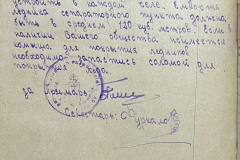 устроить в каждом селе. Емкость
ледника сепараторного пункта должна
быть в среднем 120 куб. метров. Если в
наличии Вашего общества имеется
для покрытия ледников
необходимо запастись соломой для
покрытия льда.
за
Секретарь: